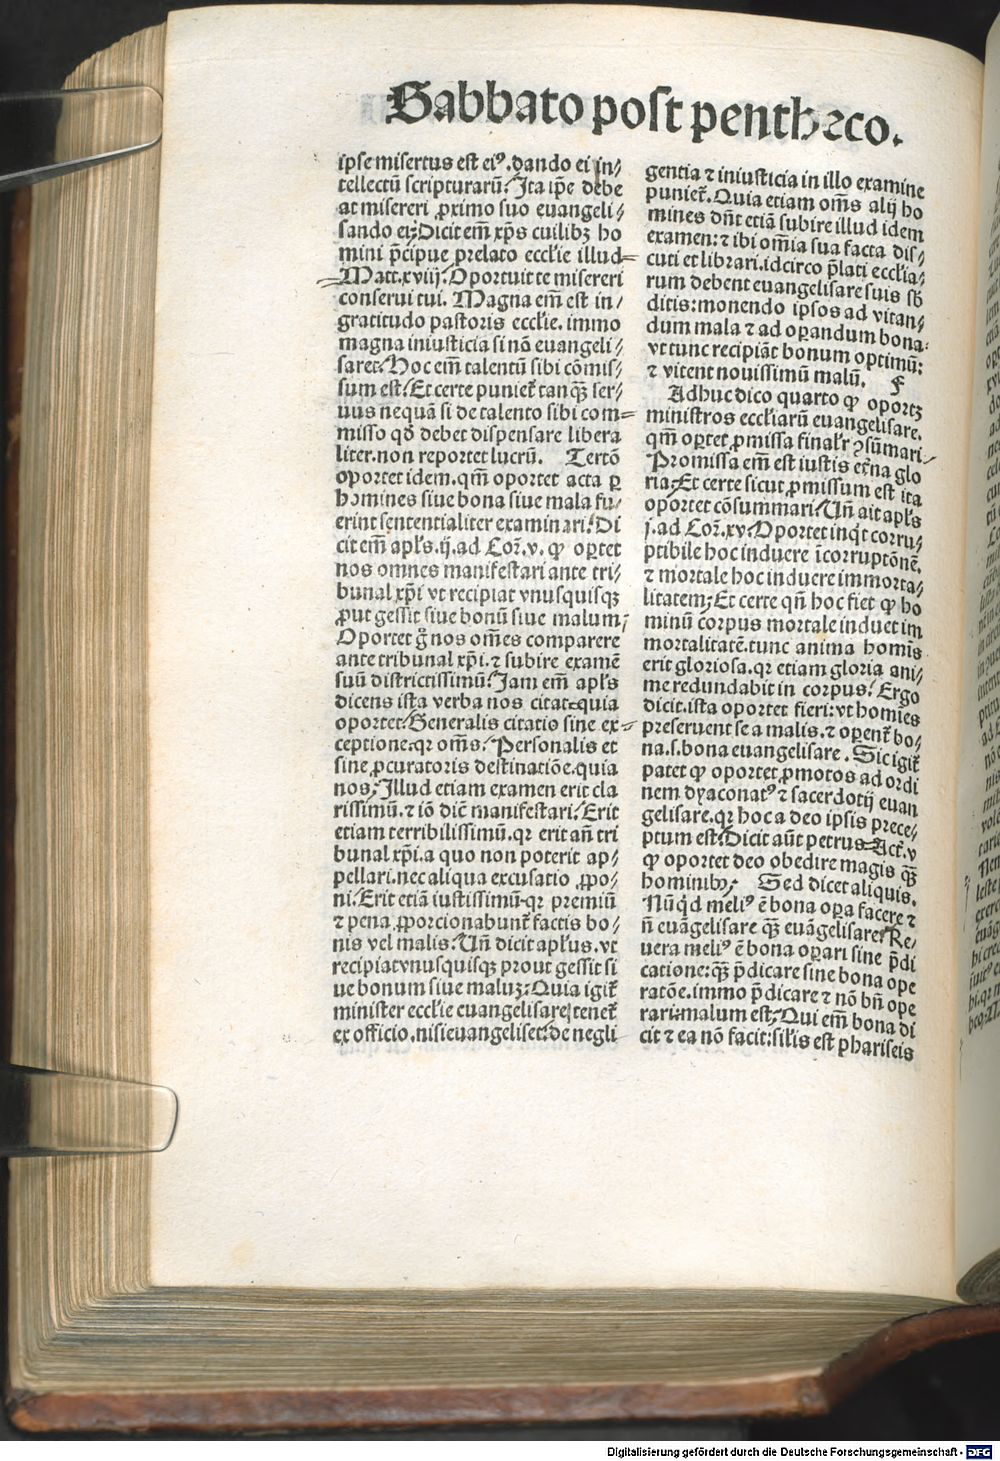 Sabbato post pentheco.
ipse misertus est eiꝰ. dando ei in⸗
tellectū scripturarū. Ita ip̄e debe
at misereri ꝓximo suo euangeli⸗
sando ei; Dicit em̄ xp̄s cuilibꝫ ho
mini p̄cipue prelato eccl̄ie illud
Matt. xviij. Oportuit te misereri
conserui tui. Magna em̄ est in⸗
gratitudo pastoris eccl̄ie. immo
magna iniusticia si nō euangeli⸗
saret. Hoc em̄ talentū sibi cōmis⸗
sum est. Et certe punieť tanqꝫ̄ ser⸗
uus nequā si de talento sibi com⸗
misso qd̄ debet dispensare libera
liter. non reportet lucrū. Tertō
oportet idem. qm̄ oportet acta ꝑ
homines siue bona siue mala fu⸗
erint sententialiter examinari. Di
cit em̄ apl̄s. ij. ad Coꝝ. v. ꝙ oꝑtet
nos omnes manifestari ante tri⸗
bunal xp̄i vt recipiat vnusquisqꝫ
ꝓut gessit siue bonū siue malum;
Oportet g̊ nos om̄es comparere
ante tribunal xp̄i. ⁊ subire examē
suū districtissimū. Iam em̄ apl̄s
dicens ista verba nos citat. quia
oportet. Generalis citatio sine ex⸗
ceptione. qꝛ om̄s. Personalis et
sine ꝓcuratoris destinatiōe. quia
nos. Illud etiam examen erit cla
rissimū. ⁊ iō dic̄t manifestari. Erit
etiam terribilissimū. qꝛ erit an̄ tri
bunal xp̄i. a quo non poterit ap⸗
pellari. nec aliqua excusatio ꝓpo⸗
ni. Erit etiā iustissimū. qꝛ premiū
⁊ pena ꝓporcionabunť factis bo⸗
nis vel malis. Un̄ dicit apl̄us. vt
recipiat vnusquisqꝫ prout gessit si
ue bonum siue maluꝫ; Quia igiť
minister eccl̄ie euangelisare teneť
ex officio. nisi euangeliset. de negli
gentia ⁊ iniusticia in illo examine
punieť. Quia etiam om̄s alij ho
mines dn̄t etiā subire illud idem
examen: ⁊ ibi om̄ia sua facta dis⸗
cuti et librari. idcirco p̄lati eccl̄ia⸗
rum debent euangelisare suis sb̄
ditis: monendo ipsos ad vitan⸗
dum mala ⁊ ad oꝑandum bona:
vt tunc recipiāt bonum optimū:
⁊ vitent nouissimū malū. F
Adhuc dico quarto ꝙ oportꝫ
ministros eccl̄iarū euangelisare.
qm̄ oꝑtet ꝓmissa final̄r ꝯsūmari
Promissa em̄ est iustis et̄na glo
ria; Et certe sicut ꝓmissum est ita
oportet cōsummari. Un̄ ait apl̄s
j. ad Coꝝ. xv. Oportet inqͥt corru⸗
ptibile hoc induere īcorruptōnē.
⁊ mortale hoc induere immorta⸗
litatem; Et certe qn̄ hoc fiet ꝙ ho
minū corpus mortale induet im
mortalitatē. tunc anima homīs
erit gloriosa. qꝛ etiam gloria ani⸗
me redundabit in corpus. Ergo
dicit. ista oportet fieri: vt homies
preseruent se a malis. ⁊ oꝑenť bo⸗
na. s. bona euangelisare. Sic igiť
patet ꝙ oportet ꝓmotos ad ordi
nem dyaconatꝰ ⁊ sacerdotij euan
gelisare. qꝛ hoc a deo ipsis prece⸗
ptum est. Dicit aūt petrus Act̄. v
ꝙ oportet deo obedire magis qꝫ̄
hominibꝫ; Sed dicet aliquis.
Nūqͥd meliꝰ ē bona oꝑa facere ⁊
n̄ euāgelisare qꝫ̄ euāgelisare. Re⸗
uera meliꝰ ē bona oꝑari sine p̄di
catione: qꝫ̄ p̄dicare sine bona ope
ratōe. immo p̄dicare ⁊ nō bn̄ ope
rari: malum est; Qui em̄ bona di
cit ⁊ ea nō facit: sil̄is est phariseis
Digitalisierung gefördert durch die Deutsche Forschungsgemeinschaft - DFG